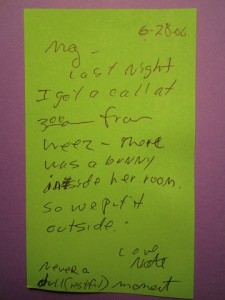 6-28-06
Meg -
Last Night
I got a call at
300am from
weez - there
was a bunny
inside her room.
So we put it
outside. -
Love
Never a
dull (restful) moment